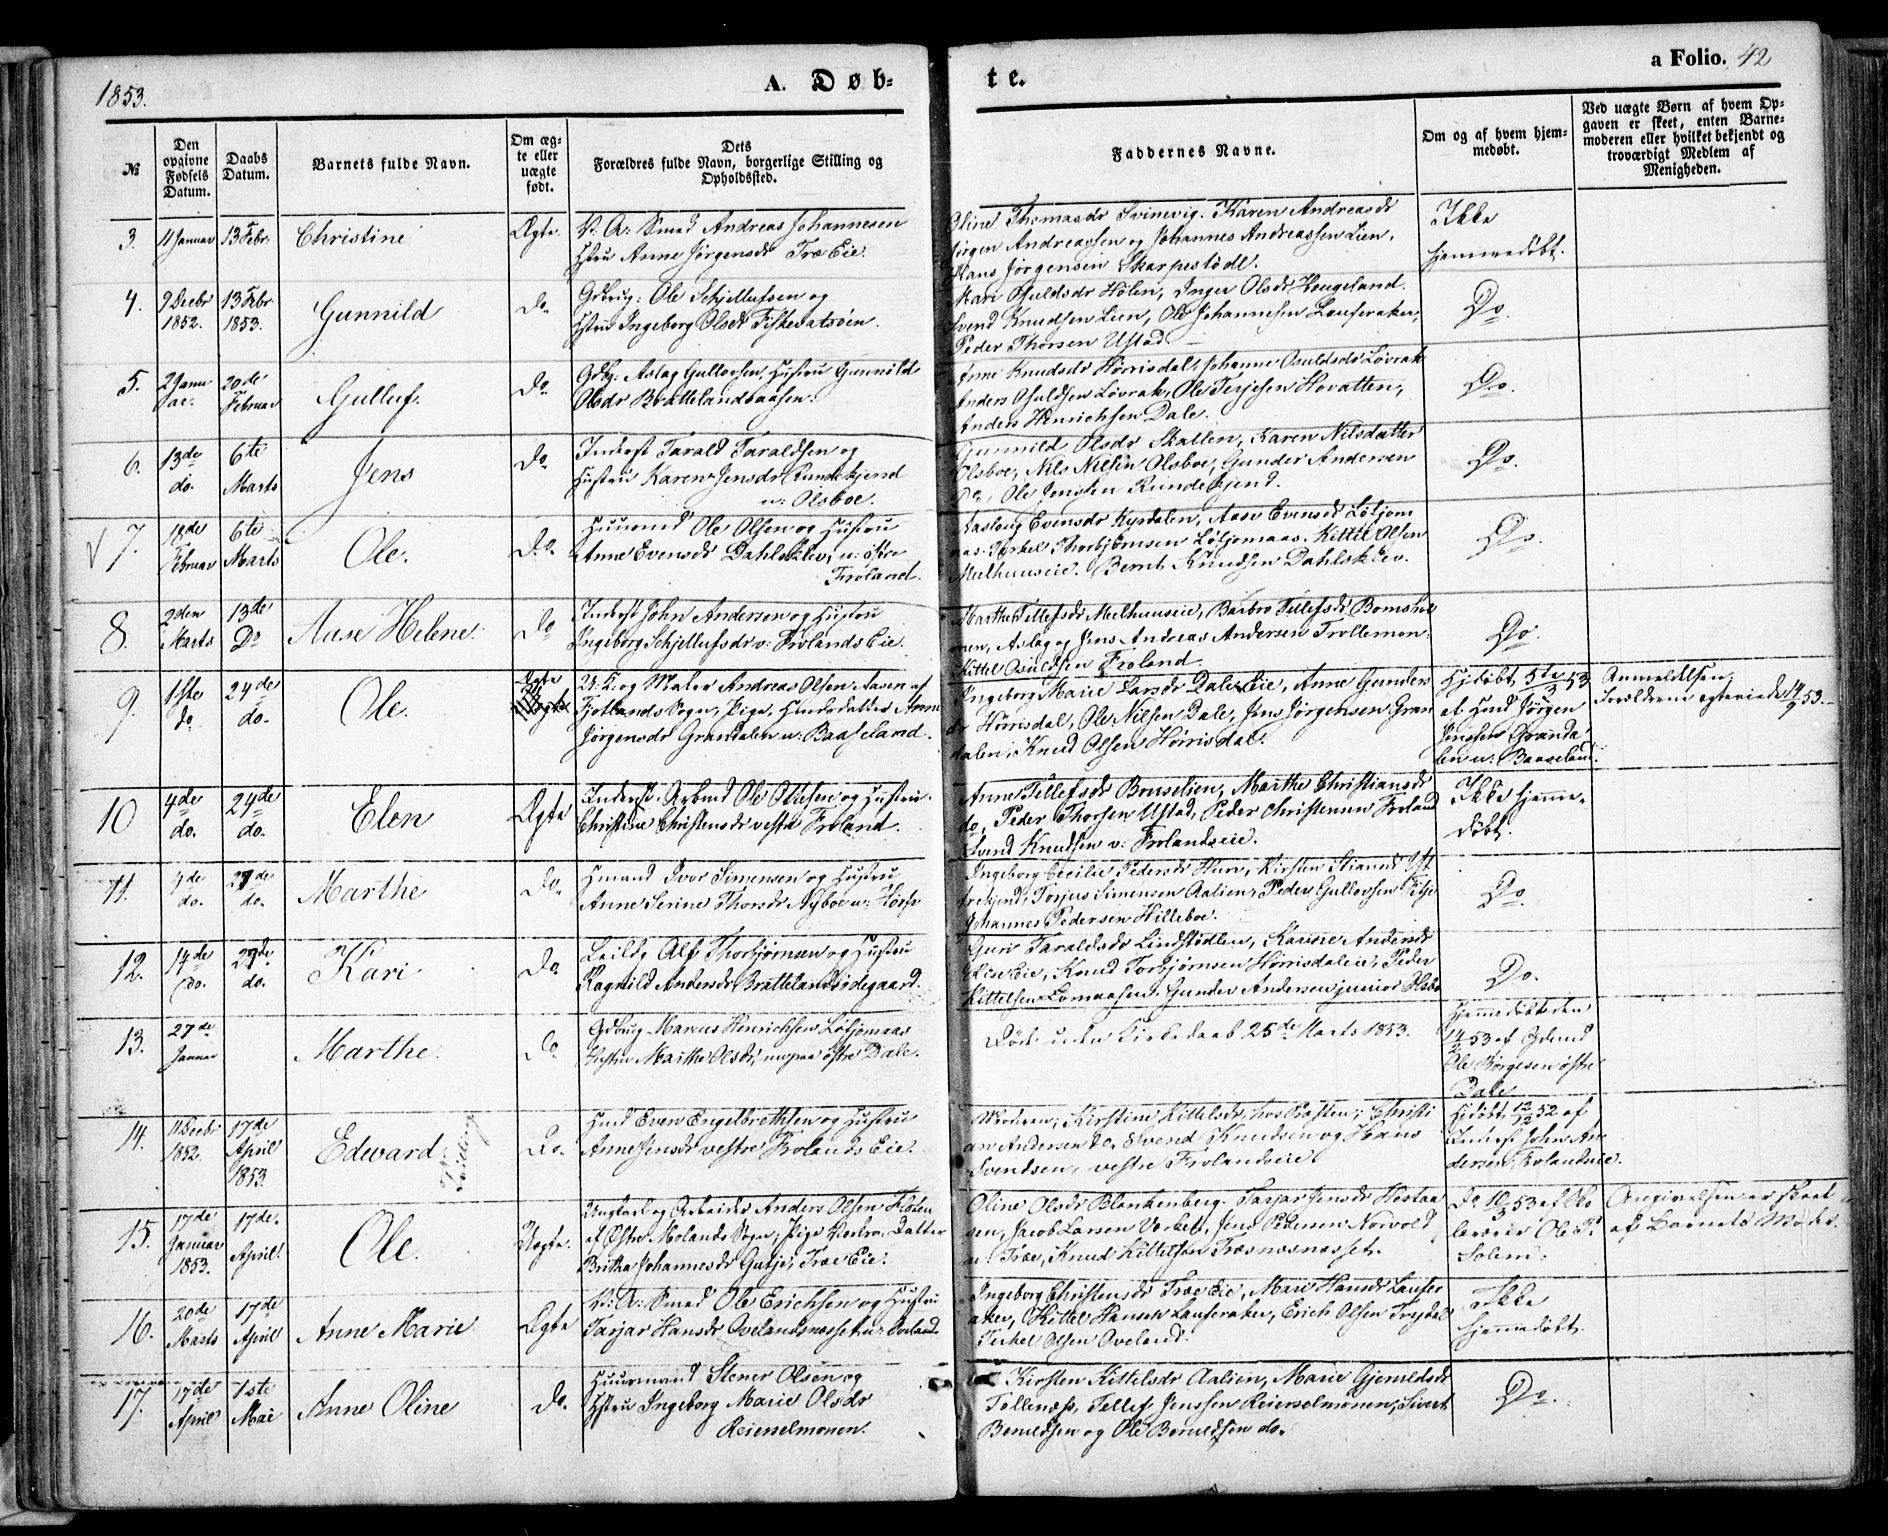 1853.
A. Døb-
te.
a Folio. 42
№
Den opgivne Fødsels Datum.
Daabs Datum.
Barnets fulde Navn.
Om ægte eller uægte født.
Dets Forældres fulde Navn, borgerlige Stilling og Opholdssted.
Faddernes Navne.
Om og af hvem hjemmedøbt.
Ved uægte Børn af hvem Opgaven er skeet, enten Barnemoderen eller hvilket bekjendt og troværdigt Medlem af Menigheden.
3. 11 Januar 13 Febr. Christine Ægte.
Smed Andreas Johannesen
Hstru Anne Jørgensdr Træ Eie.
Oline Thomasdr Svinevig. Karen Andreasdr
Jørgen Andreassen og Johannes Andreassen Lien,
Hans Jørgensen Skarpestødl.
Ikke
hjemmedøbt.
4. 9 Decbr 1852. 13 Febr 1853. Gunnild do
Gdbrug: Ole Schjellufsen og
Hstru Ingeborg Olsdr Fiskevatsøen.
Kari Osuldsdr Hølen, Inger Olsdr Hougeland.
Svend Knudsen Lien, Ole Johannesen Lauferaker,
Peder Thorsen Ustad
Do.
5. 2 Januar. 20de Februar Gulluf. do
Gdbr: Aslag Gullovsen, Hustru Gunnild
Olsdr Brattelandsaasen.
Anne Knudsdr Hørrisdal, Johanne Osuldsdr Løvrak
Anders Osuldsen Løvrak, Ole Terjesen Hovatten,
Anders Henrichsen Dale.
Do.
6. 13de do. 6te Marts Jens do
Inderst Tarald Taraldsen og
Hustru Karen Jensdr Rundekjend
u: Olsboe.
Gunnild Olsdr Skallen, Karen Nilsdatter
Olsboe, Nils Nilsen Olsboe, Gunder Andersen
Do, Ole Jensen Rundekjend.
Do.
7. 18de Februar 6te Marts Ole. do.
Huusmd Ole Olsen og Hustru
Anne Evensdr Dahlsklev, u: østre
Froland.
Aaslaug Evensdr Kyrdalen, Aase Evensdr Løljom
aas. Terkel Thorbjørnsen Løljomaas. Kittel Olsen
Melhuuseie. Bernt Knudsen Dahlsklev.
Do.
8. 2den Marts 13de Do Aase Helene. do
Inderst John Andersen og Hustru
Ingeborg Schjellufsdr v: Frolands Eie.
Marthe Tellefsdr Melhuuseie, Barbro Tellefsdr Bomsholmen,
Aslag og Jens Andreas Andersen Trollemon.
Kittel Osuldsen Froland.
Do.
9. 1ste do 24de do. Ole. Uægte
U: K: og Maler Andreas Olsen Aasen af
Hjotlands Sogn, Pige, Huusdatter Anne
Jørgensdr Grandalen u: Baaseland.
Ingeborg Marie Larsdr Dale Eie, Anne Gunders
dr Hørrisdal, Ole Nilsen Dale, Jens Jørgensen Gran
dalen, Knud Olsen Hørrisdal.
Hjdøbt 5te/3 53
af Hmd Jørgen
Jensen Granda
len u: Baaseland.
Anmeldelsen,
Forældrene egteviede 14/9 53.
10 4de do. 24de do. Elen Ægte
Inderst: Arbmd Ole Olesen og Hustru
Christine Christensdr vestre Froland.
Anne Tellefsdr Bruselien, Marthe Christiansdr
do, Peder Thorsen Ustad, Peder Christensen Froland
Svend Knudsen v: Frolandseie.
Ikke hjemme-
døbt.
11. 4de do. 27de do. Marthe do.
Hmand Ivor Simensen og Hustru
Anne Serine Thorsdr Nyboe u: Hurv
Ingeborg Cecilie Pedersdr Hurv, Kirsten
Torjus Simensen Aalien, Peder Gullovsen
Johannes Pedersen Hilleboe.
Do.
12. 14de do. 27de do. Kari do
Leildg Alf Thorbjørnsen og Hustru
Ragnild Andersdr Brattelandsødegaard.
Guri Taraldsdr Lindstødlen, Karine Andersdr
Rise Eie, Knud Torbjørnsen Hørrisdaleie, Peder
Kittelsen Lomaasen. Gunder Andersen junior Olsbo
Do.
13. 27de Januar Marthe. do
Gdbrug Marcus Henrichsen Løljomaas
Hustru Marthe Olsdr, nu paa østre Dale.
Død uden Kirkedaab 25de Marts 1853.
Hjemmedøbt den
14/2 53 af Gdmd
Ole Børgesen østre
Dale
14. 11 Decbr 1852. 17de April 1853. Edward. Tvilling do.
Hmd Even Engelbrethsen og Hustru
Anne Jensdr vestre Frolands Eie.
Moderen, Kirstine Kittelsdr, hos Præsten, Christi
an Andersen do, Svend Knudsen og Hans
Svendsen, vestre Frolandseie.
Hjdøbt 12/12 52 af
Inderst John An
dersen, Frolandseie.
15. 17de Januar 1853. 17de April. Ole. Uægte.
Ungkarl og Arbeider Anders Olsen Floten
af Østre Molands Sogn, Pige Huusm. Datter
Britha Johannesdr Gutje, Træ Eie.
Oline Olsdr Blankenberg. Tarjær Jensdr Hestaa
sen, Jacob Larsen Værket, Jens Petersen Norvold
u: Træ, Knud Kittelsen Træsnæsnæsset.
Do 10/3 53 af Sko
lelærer Ole T.
Solem.
Angivelsen er skeet
af Barnets Moder.
16. 20de Marts 17de April Anne Marie Ægte
Smed Ole Erichsen og Hustru
Tarjær Hansdr Ovelandsnesset u: Oveland
Ingeborg Christensdr Træ Eie, Marie Hansdr Laufer
aker, Kittel Hansen Lauferaker, Erich Olsen Trejdal
Terkel Olsen Oveland.
Ikke
hjemmedøbt.
17. 17de April 1ste Mai Anne Oline do.
Huusmand Stener Olsen og
Hstru Ingeborg Marie Olsdr
Reierselmonen.
Kirsten Kittelsdr Aalien, Marie Gjeruldsdr
Tollenæs, Tellef Jenssen Reierselmonen, Sivert
Beruldsen og Ole Beruldsen do.
Do.